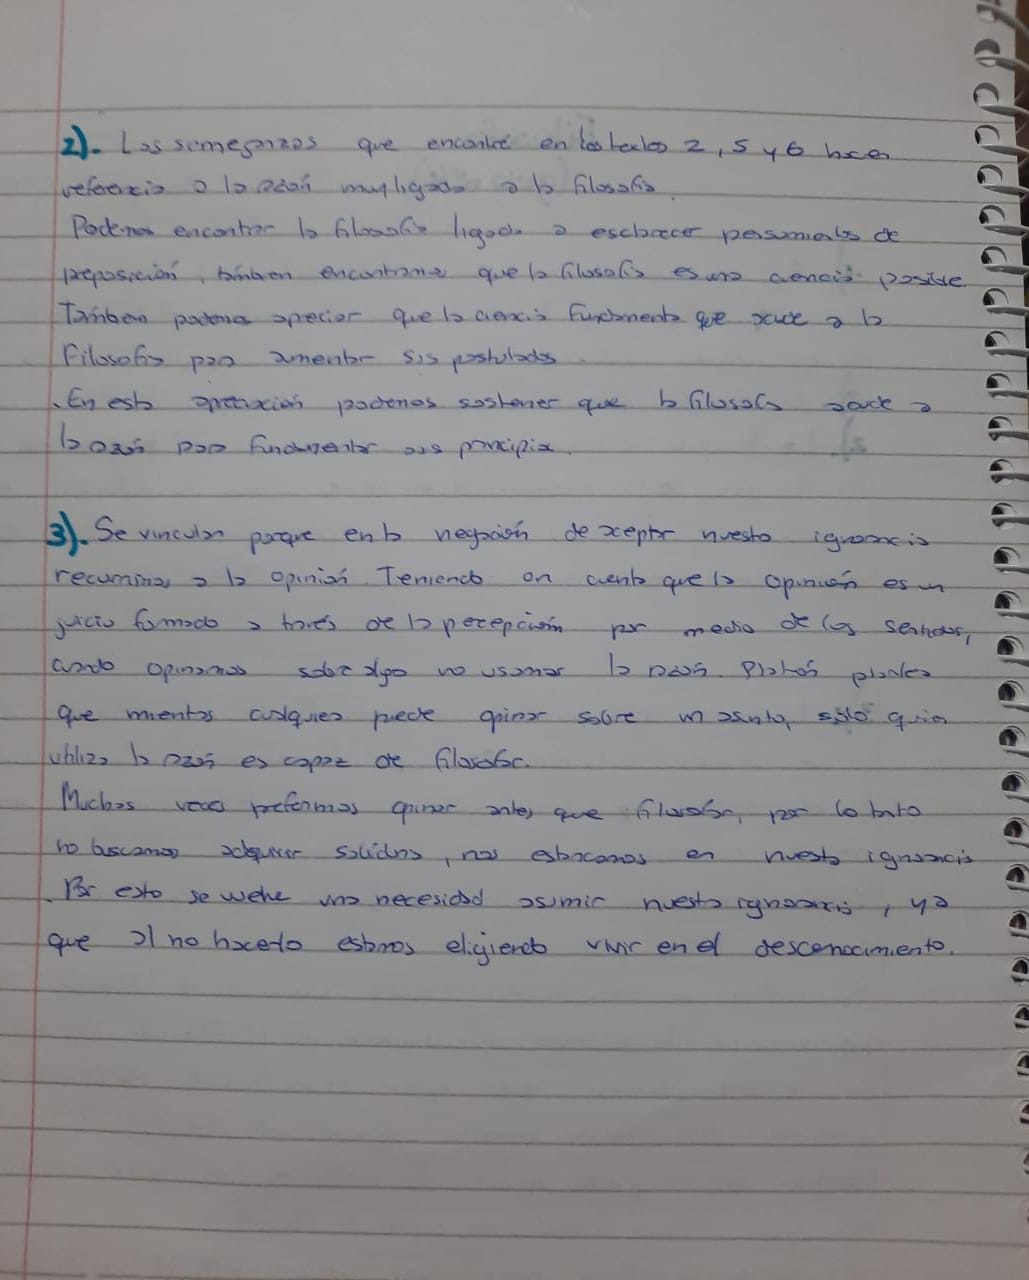 2). Las semejanzas que encontré en los textos 2, 5 y 6 hacen
referencia a la razón muy ligada a la filosofía.
Podemos encontrar la filosofía ligada a esclarecer pensamientos de
preposición, también encontramos que la filosofía es una ciencia posible.
También podemos apreciar que la ciencia fundamenta que acude a la
Filosofía para aumentar sus postulados
. En esta apreciación podemos sostener que la filosofía acude a
la razón para fundamentar sus principios.
3). Se vinculan porque en la negación de aceptar nuestra ignorancia
recurrimos a la opinión. Teniendo en cuenta que la opinión es un
juicio formado a través de la percepción por medio de los sentidos,
cuando opinamos sobre algo no usamos la razón. Platón plantea
que mientras cualquiera puede opinar sobre un asunto, sólo quien
utiliza la razón es capaz de filosofar.
Muchas veces preferimos opinar antes que filosofar, por lo tanto
no buscamos adquirir, nos estancamos en nuestra ignorancia
. Por esto se vuelve una necesidad asumir nuestra ignorancia, ya
que al no hacerlo estamos eligiendo vivir en el desconocimiento.